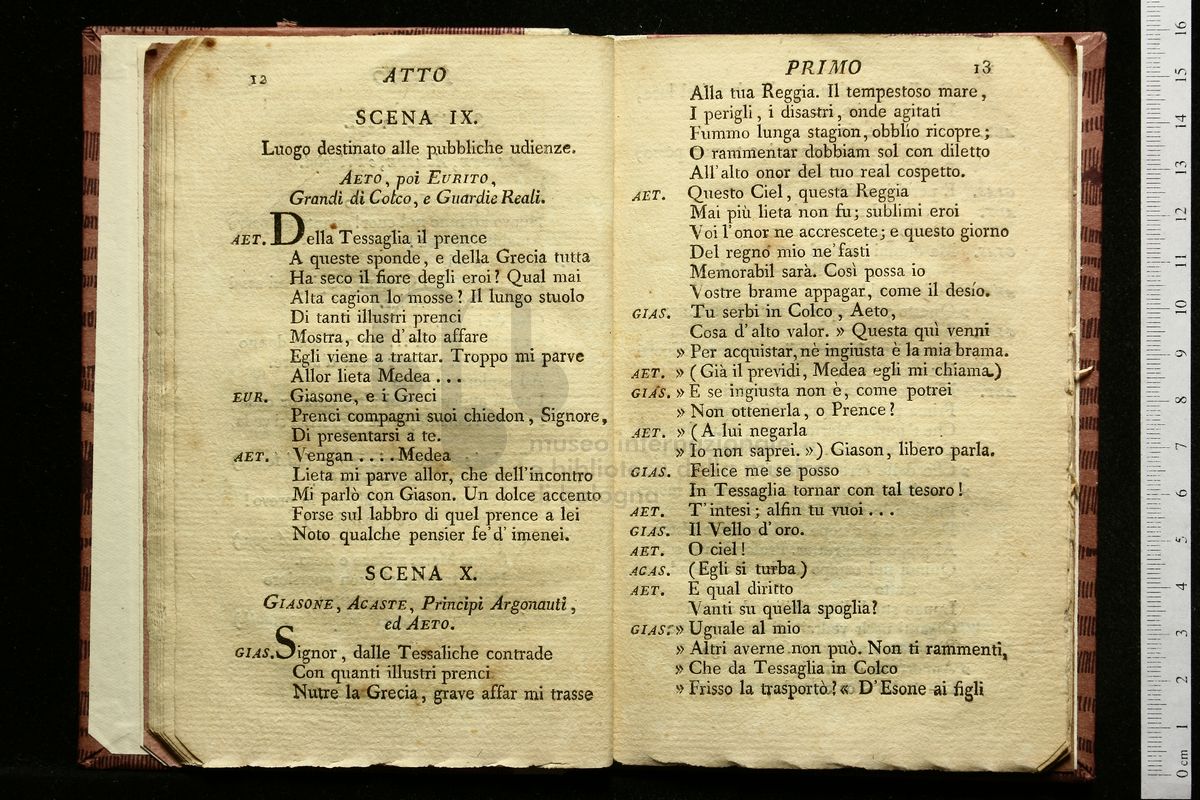 12 ATTO
SCENA IX.
Luogo destinato alle pubbliche udienze.
AETO, poi EURITO,
Grandi di Colco, e Guardie Reali.
AET. Della Tessaglia il prence
A queste sponde, e della Grecia tutta
Ha seco il fiore degli eroi? Qual mai
Alta cagion lo mosse? Il lungo stuolo
Di tanti illustri prenci
Mostra, che d'alto affare
Egli viene a trattar. Troppo mi parve
Allor lieta Medea . . .
EUR. Giasone, e i Greci
Prenci compagni suoi chiedon, Signore,
Di presentarsi a te.
AET. Vengan . . : . Medea
Lieta mi parve allor, che dell'incontro
Mi parlò con Giason. Un dolce accento
Forse sul labbro di quel prence a lei
Noto qualche pensier fe'd'imenei.
SCENA X.
GIASONE, ACASTE, Principi Argonauti,
ed AETO.
GIAS. Signor, dalle Tessaliche contrade
Con quanti illustri prenci
Nutre la Grecia, grave affar mi trasse
PRIMO 13
Alla tua Reggia. Il tempestoso mare,
I perigli, i disastri, onde agitati
Fummo lunga stagion, obblío ricopre;
O rammentar dobbiam sol con diletto
All'alto onor del tuo real cospetto.
AET. Questo Ciel, questa Reggia
Mai più lieta non fu; sublimi eroi
Voi l'onor ne accrescete; e questo giorno
Del regno mio ne'fasti
Memorabil sarà. Così possa io
Vostre brame appagar, come il desío.
GIAS. Tu serbi in Colco, Aeto,
Cosa d'alto valor. » Questa quì venni
» Per acquistar, nè ingiusta è la mia brama.
AET. » (Già il previdi, Medea egli mi chiama.)
GIAS. » E se ingiusta non è, come potrei
» Non ottenerla, o Prence?
AET. » (A lui negarla
» Io non saprei. ») Giason, libero parla.
GIAS. Felice me se posso
In Tessaglia tornar con tal tesoro!
AET. T'intesi; alfin tu vuoi . . .
GIAS. Il Vello d'oro.
AET. O ciel!
ACAS. (Egli si turba)
AET. E qual diritto
Vanti su quella spoglia?
GIAS. » Uguale al mio
» Altri averne non può. Non ti rammenti,
» Che da Tessaglia in Colco
» Frisso la trasportò? « D'Esone ai figli
museo internazionale
e biblioteca della
bologna
0 cm 1 2 3 4 5 6 7 8 9 10 11 12 13 14 15 16